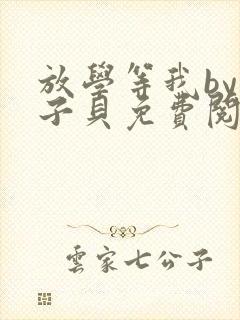 放學等我by
子貝免費閱
雲家七公子